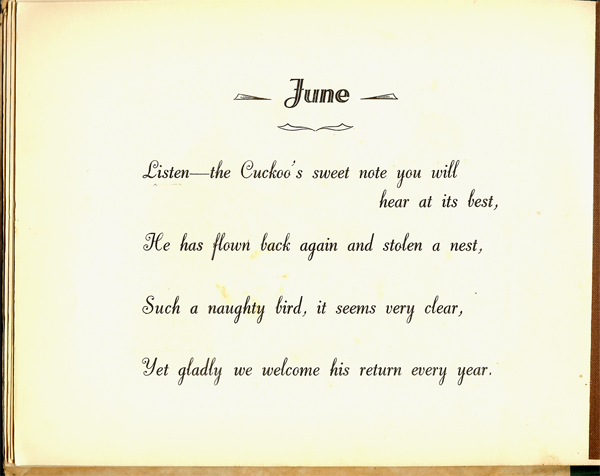 June
Listen—the Cuckoo's sweet note you will
hear at its best,
He has flown back again and stolen a nest,
Such a naughty bird, it seems very clear,
Yet gladly we welcome his return every year.